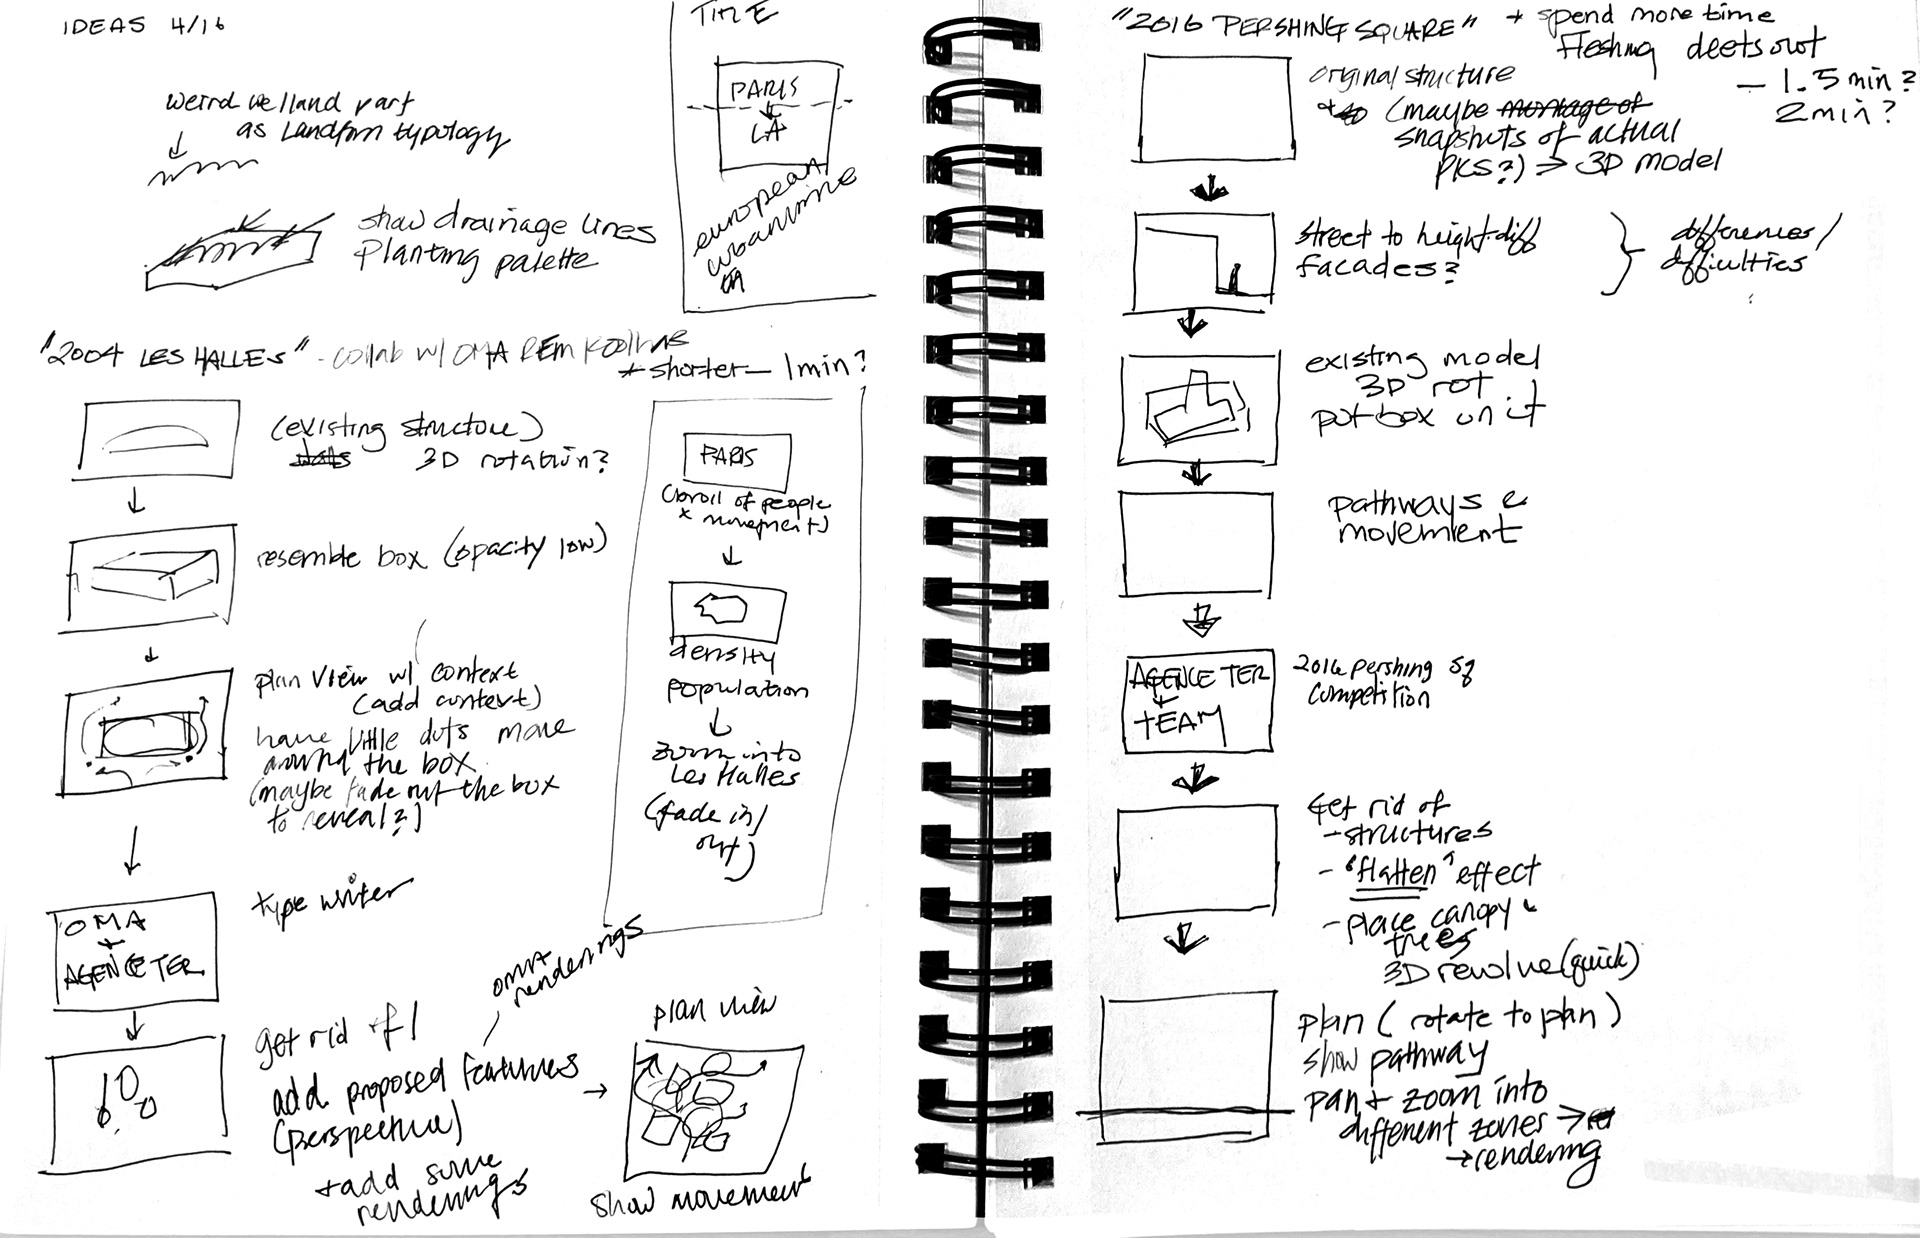 IDEAS 4/16
weird wetland part
as landform typology
show drainage lines
Planting palette
TITLE
PARIS
LA
european
"2004 LES HALLES" - collab w/ OMA REM Koolhas
* shorter — 1min?
(existing structure)
3D rotation?
resemble box (opacity low)
plan view w/ context
(add context)
have little dots move
around the box
(maybe fade out the box
to reveal?)
OMA
+
AGENCE TER
type writer
get rid of/
add proposed features
(perspective)
+ add some
renderings
OMA
renderings
PARIS
(scroll of people
x movement)
density
population
zoom into
Les Halles
(fade in/
out)
plan view
show movement
"2016 PERSHING SQUARE"
* spend more time
fleshing deets out
— 1.5 min?
2 min?
original structure
(maybe montage of
snapshots of actual
pics?) → 3D model
street to height diff
facades?
differences/
difficulties
existing model
3D rot
put box on it
pathways &
movement
AGENCE TER
+
TEAM
2016 pershing sq
competition
Get rid of
- structures
- "flatten" effect
- place canopy
trees
3D revolve (quick)
plan (rotate to plan)
show pathway
pan + zoom into
different zones →
→ rendering